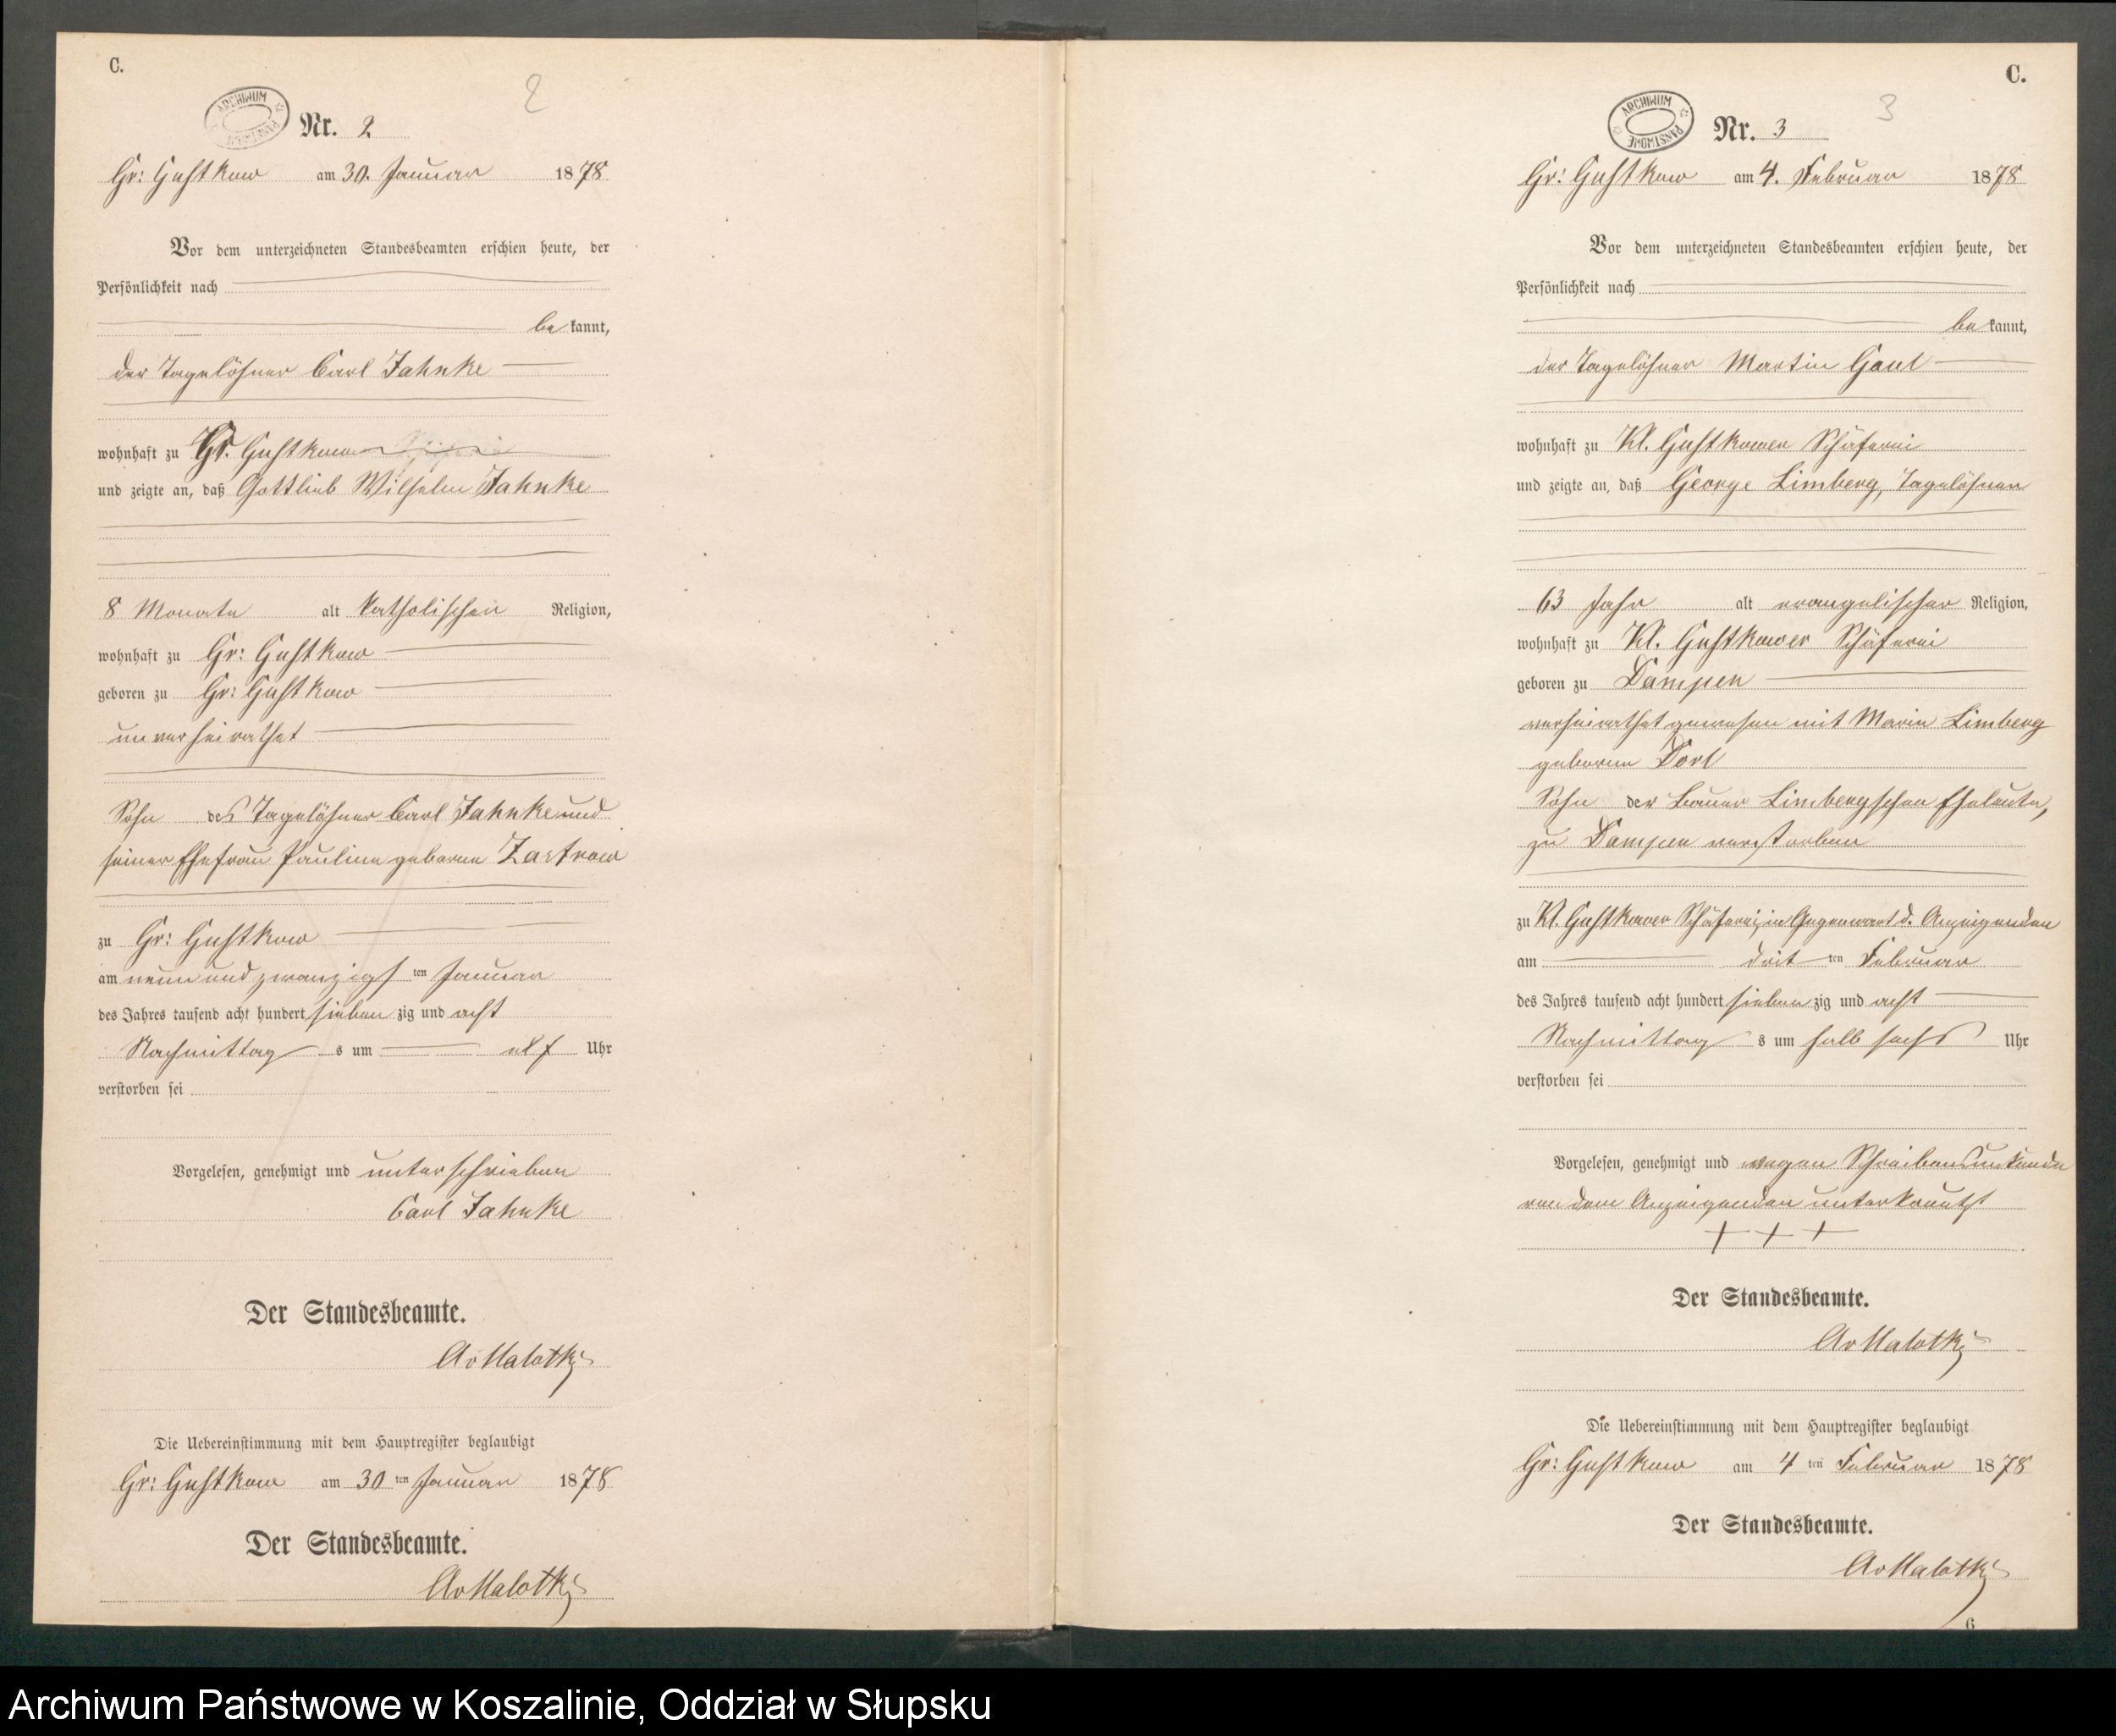 C.
2
ARCHIWUM PAŃSTWOWE
Nr. 2
Gr: Gustkow am 30. Januar 1878
Vor dem unterzeichneten Standesbeamten erschien heute, der
Persönlichkeit nach
be kannt,
der Tagelöhner Carl Jahnke
wohnhaft zu Gr. Gustkow
und zeigte an, daß Gottlieb Wilhelm Jahnke
8 Monate alt katholischen Religion,
wohnhaft zu Gr: Gustkow
geboren zu Gr: Gustkow
unverheirathet
Sohn des Tagelöhner Carl Jahnke und
seiner Ehefrau Pauline geborne Zastrow
zu Gr: Gustkow
am neun und zwanzigs ten Januar
des Jahres tausend acht hundert sieben zig und acht
Nachmittag s um elf Uhr
verstorben sei
Vorgelesen, genehmigt und unterschrieben
Carl Jahnke
Der Standesbeamte.
AvMalotki
Die Uebereinstimmung mit dem Hauptregister beglaubigt
Gr: Gustkow am 30 ten Januar 1878
Der Standesbeamte.
AvMalotki
C.
3
ARCHIWUM PAŃSTWOWE
Nr. 3
Gr: Gustkow am 4. Februar 1878
Vor dem unterzeichneten Standesbeamten erschien heute, der
Persönlichkeit nach
be kannt,
der Tagelöhner Martin Gaul
wohnhaft zu Kl. Gustkower Schäferei
und zeigte an, daß George Limberg, Tagelöhner
63 Jahr alt evangelischer Religion,
wohnhaft zu Kl. Gustkower Schäferei
geboren zu Dampen
verheirathet gewesen mit Marie Limberg
geborne Dorl
Sohn der Bauer Limbergschen Eheleute,
zu Dampen verstorben
zu Kl. Gustkower Schäferei, in Gegenwart d. Anzeigenden
am drit ten Februar
des Jahres tausend acht hundert sieben zig und acht
Nachmittag s um halb sechs Uhr
verstorben sei
Vorgelesen, genehmigt und wegen Schreibensunkunde
von dem Anzeigenden unterkreuzt
+ + +
Der Standesbeamte.
AvMalotki
Die Uebereinstimmung mit dem Hauptregister beglaubigt
Gr: Gustkow am 4 ten Februar 1878
Der Standesbeamte.
AvMalotki
6
Archiwum Państwowe w Koszalinie, Oddział w Słupsku